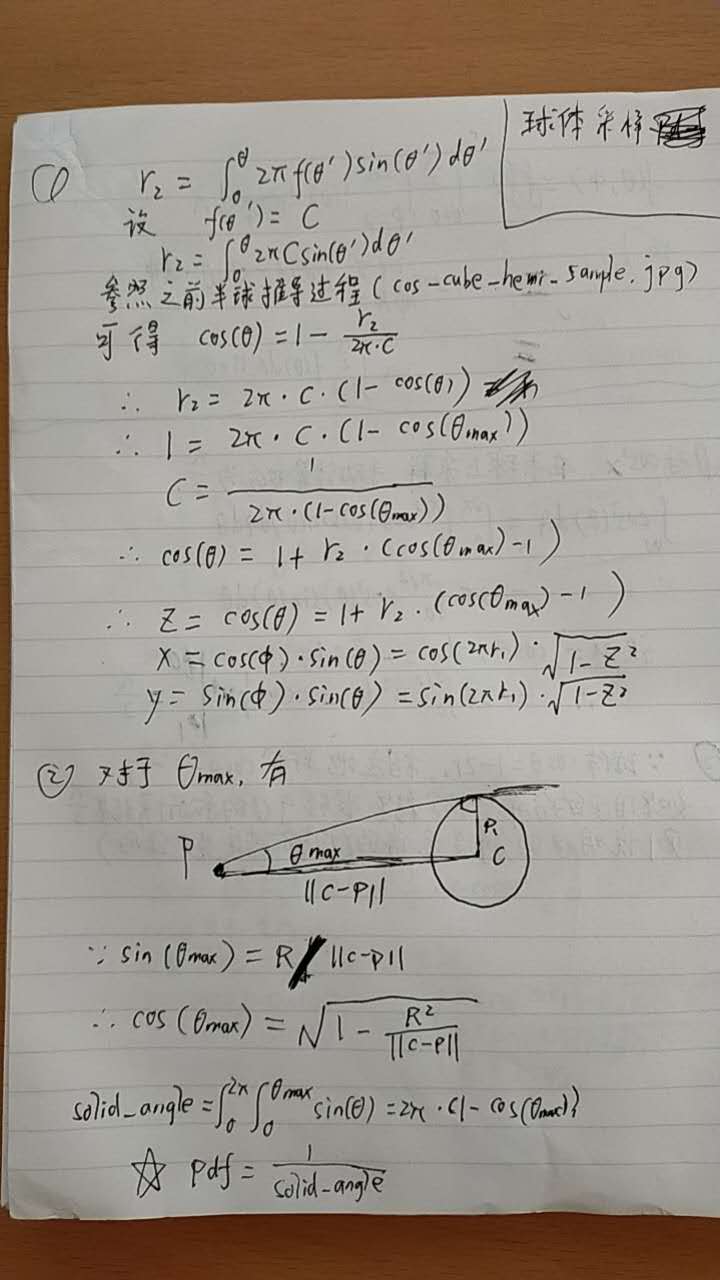 球体采样
① r₂ = ∫₀^θ 2π f(θ′) sin(θ′) dθ′
设 f(θ′) = C
r₂ = ∫₀^θ 2π C sin(θ′) dθ′
参照之前半球推导过程 (cos-cube-hemi-sample.jpg)
可得 cos(θ) = 1 - r₂/(2π·C)
∴ r₂ = 2π · C · (1 - cos(θ))
∴ 1 = 2π · C · (1 - cos(θmax))
C = 1/(2π·(1-cos(θmax)))
∴ cos(θ) = 1 + r₂ · (cos(θmax) - 1)
∴ Z = cos(θ) = 1 + r₂ · (cos(θmax) - 1)
X = cos(ϕ) · sin(θ) = cos(2πr₁) · √(1-Z²)
y = sin(ϕ) · sin(θ) = sin(2πr₁) · √(1-Z²)
② 对于 θmax, 有
P θmax C
||C-P||
∵ sin(θmax) = R / ||C-P||
∴ cos(θmax) = √(1 - R²/||C-P||)
solid_angle = ∫₀^2π ∫₀^θmax sin(θ) = 2π · (1 - cos(θmax))
☆ pdf = 1/solid-angle